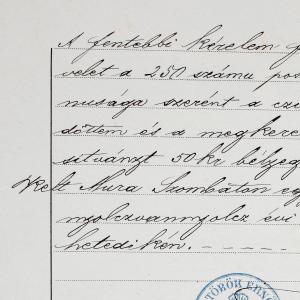 A fentebbi kérelem
velet a 250 számu pos
nusága szerént a czu
döttem és a megkere
sitványzt 50 kr bélyeg
Kelt Mura Szombaton egy
nyolczvannyolcz évi
hetedikén.
TÖRÖK ERNŐ